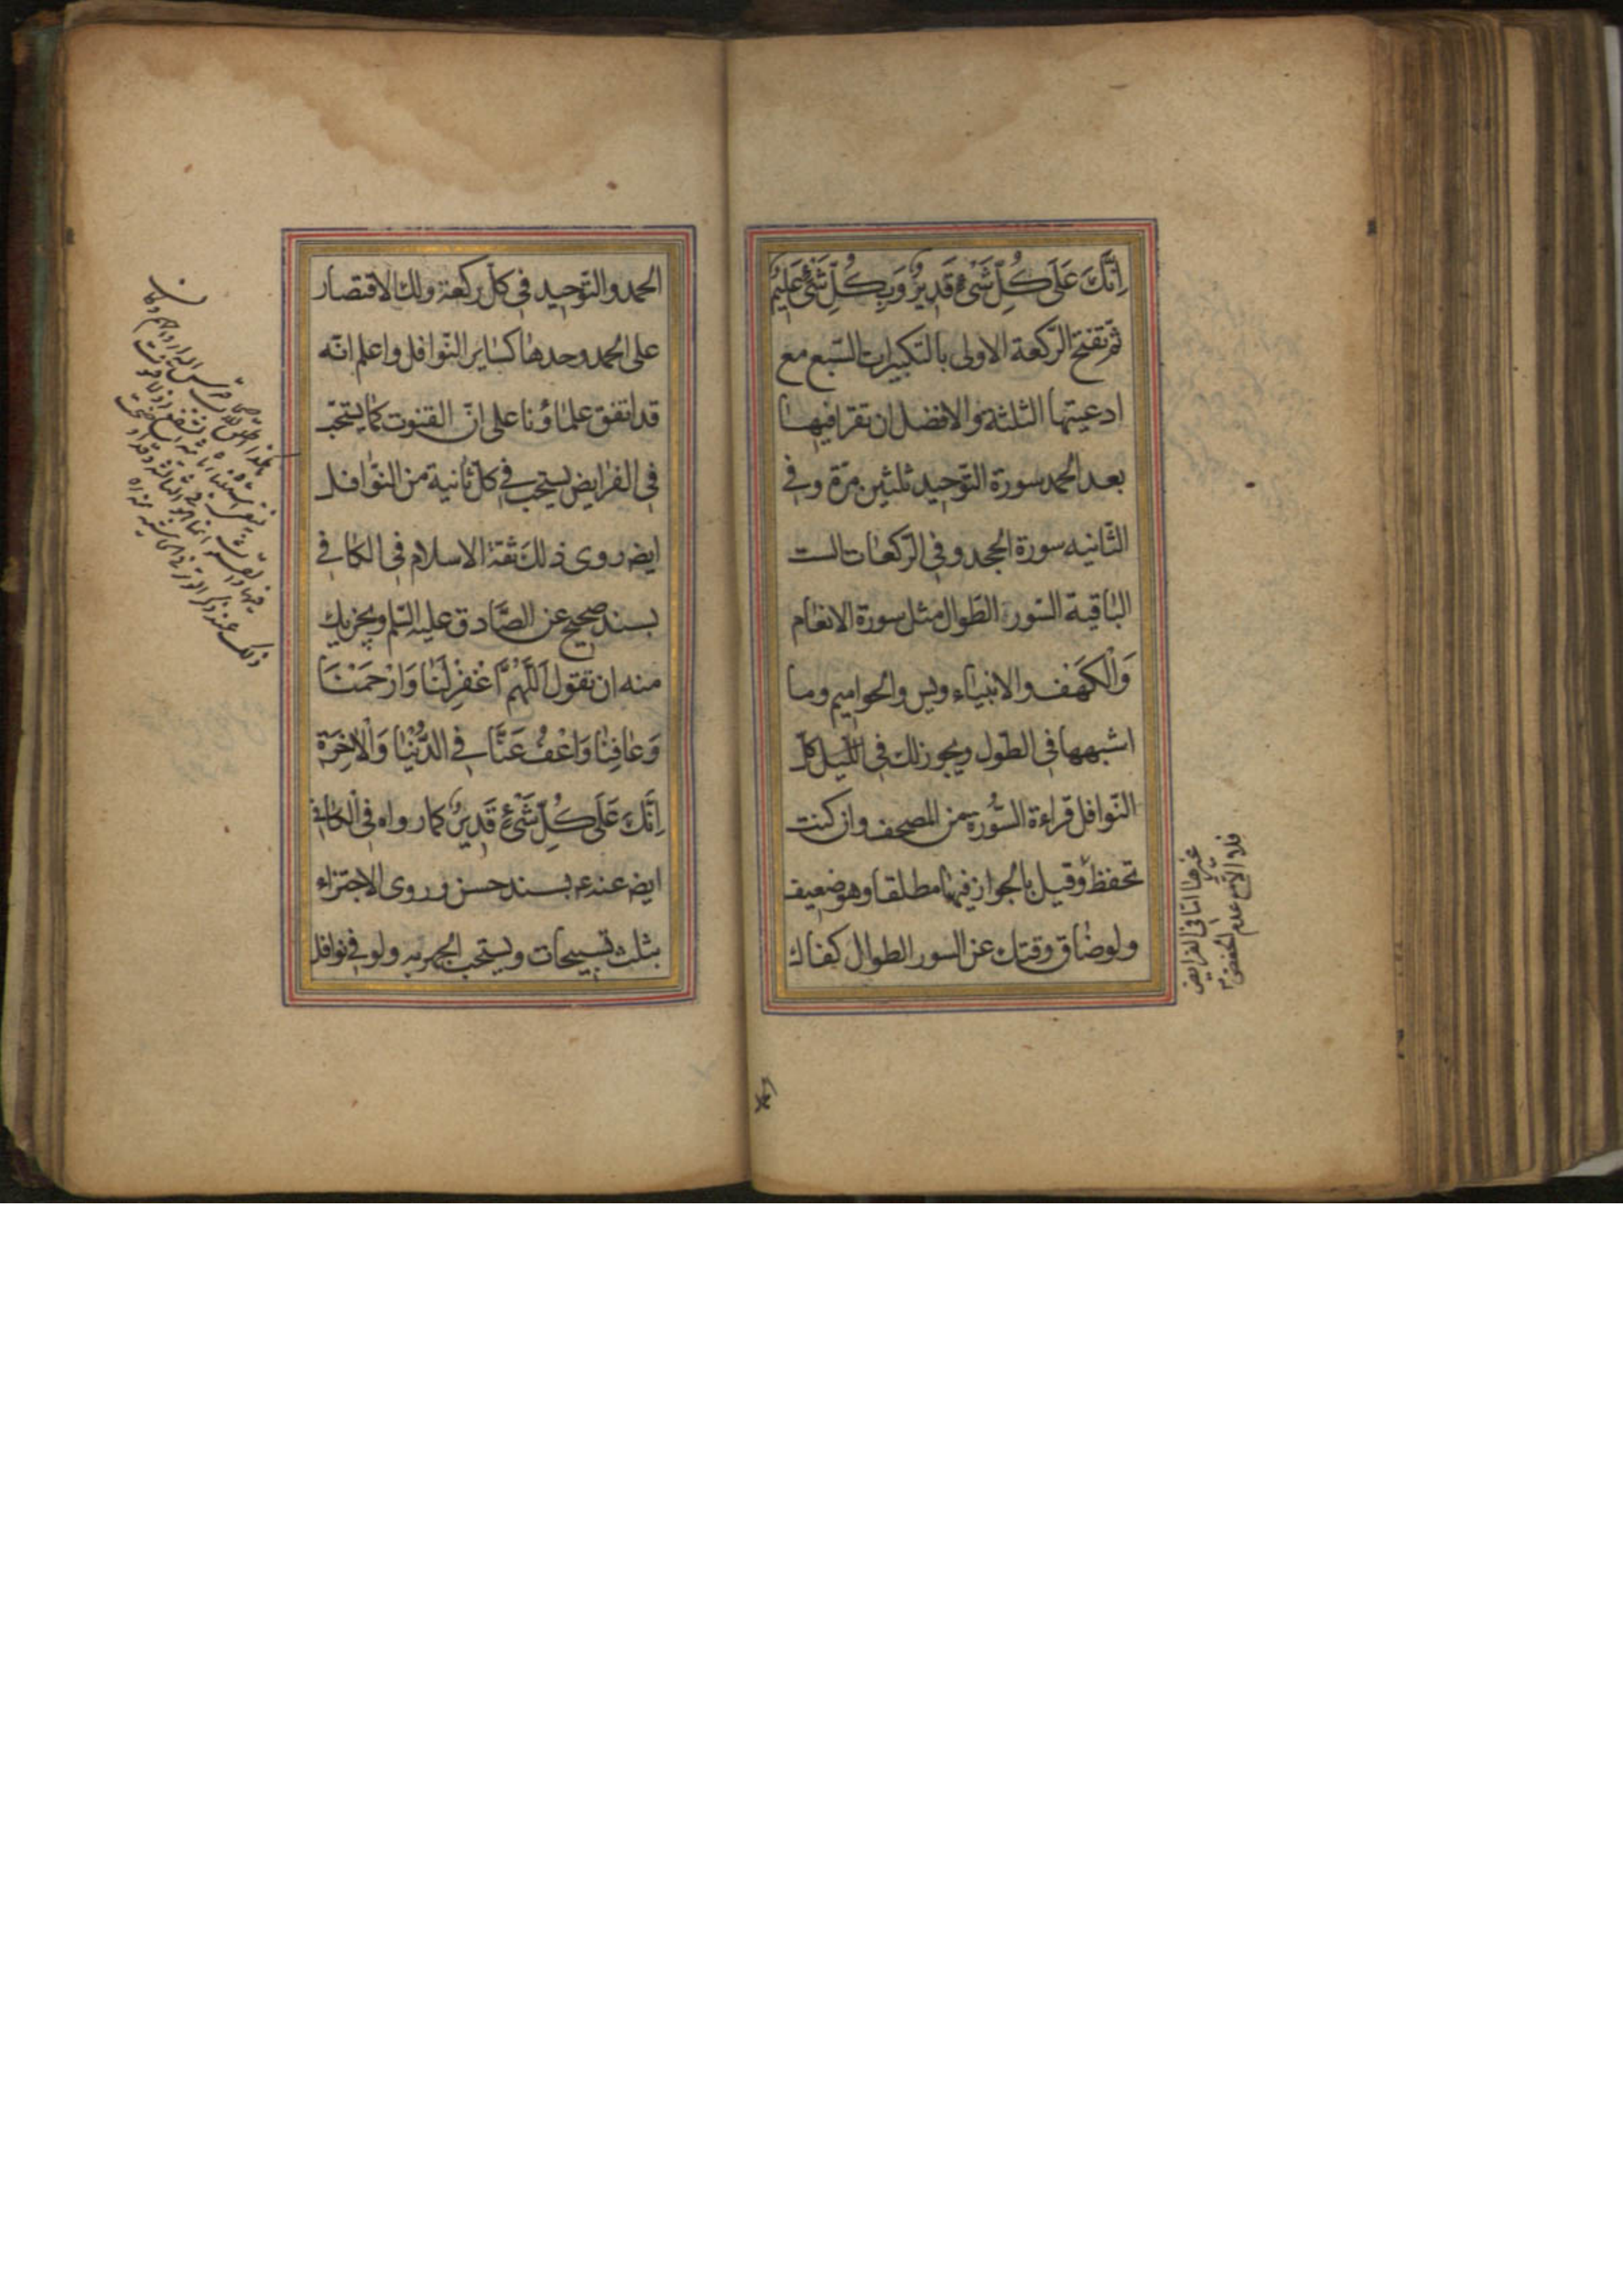 اِنَّكَ عَلَى كُلِّ شَيْءٍ قَدِيرٌ وَبِكُلِّ شَيْءٍ عَلِيمٌ
ثم تفتتح الرّكعة الاولى بالتكبيرات السّبع مع
ادعيتها الثلثة والافضل ان تقرا فيها
بعد الحمد سورة التّوحيد ثلثين مرّة وفي
الثّانيه سورة الجحد وفي الرّكعات الست
الباقية السّور الطّوال مثل سورة الانعام
وَالْكَهَف والانبياء ويس والحواميم وما
اشبهها في الطّول ويجوز لك في اللّيل كل
النّوافل قراءة السُّورة من المصحف وان كنت
تحفظ وقيل بالجواز فيها مطلقا وهو ضعيف
ولو ضاق وقتك عن السور الطوال كفاك
غيرها امّا في الفرايض
فلا الاصح عدم
الحمد
الحمد والتّوحيد في كلّ ركعة ولك الاقتصار
على الحمد وحدها كساير النّوافل واعلم انّه
قد اتفق علماؤنا على انّ القنوت كما يستحبّ
في الفرايض يستحب في كلّ ثانية من النّوافل
ايض روى ذلك ثقة الاسلام في الكافي
بسند صحيح عن الصّادق عليه السّلم ويجزيك
منه ان تقول اَللّهُمَّ اغْفِرْلَنَا وَارْحَمْنَا
وَعَافِنَا وَاعْفُ عَنَّا فِي الدُّنْيَا وَالْاخِرَة
اِنَّكَ عَلَى كُلِّ شَيْءٍ قَدِيرٌ كما رواه في الكافي
ايض عنه ع بسند حسن وروى الاجتزاء
بثلث تسبيحات ويستحب الجهر به ولو في نوافل